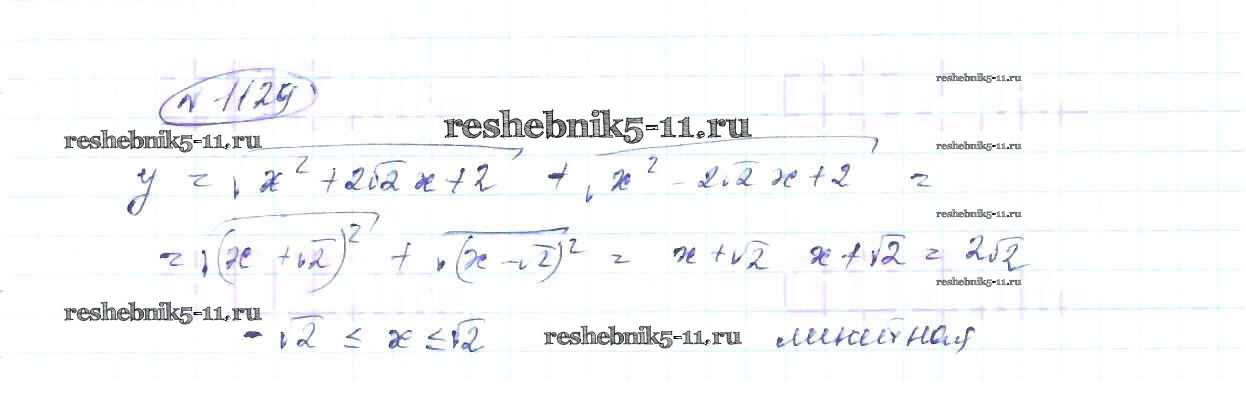 № 1129
reshebnik5-11.ru
reshebnik5-11.ru
reshebnik5-11.ru
reshebnik5-11.ru
y = √x² + 2√2 x + 2 + √x² - 2√2 x + 2 =
reshebnik5-11.ru
= √(x + √2)² + √(x - √2)² = x + √2 x + √2 = 2√2
reshebnik5-11.ru
reshebnik5-11.ru
-√2 ≤ x ≤ √2 reshebnik5-11.ru линейная